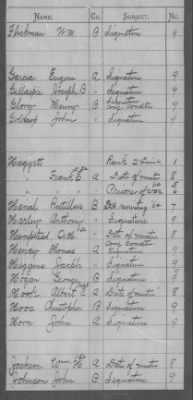 NAME. Co. SUBJECT. No.
Flickman Wm B Signature 9
Garcia Eugene A Signature 9
Gillaspie Joseph B B Signature 9
Glory Henry B Signature 9
Goldsop John " Signature 9
Haggett Rank 1
" Frank E A Date of muster 5
" " " Prisoner of War 5
Hamal Rutillus B 7
Harley Anthony " Signature 9
Hempstead " Date of muster 8
Henry Thomas A
Higgins Joseph " Signature 9
Hogan George B Signature 9
Hook Albert A Date of muster 8
Hoos Christopher B Signature 9
Hove John A Signature 9
Jackson Wm H A Date of muster 8
Johnson John B Signature 9